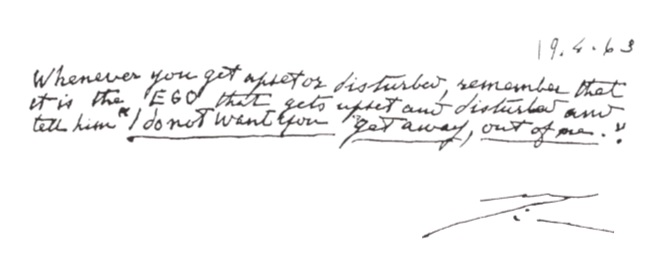 19.4.63
Whenever you get upset or disturbed, remember that
it is the "EGO" that gets upset and disturbed and
tell him "I do not want you "get away, out of me."